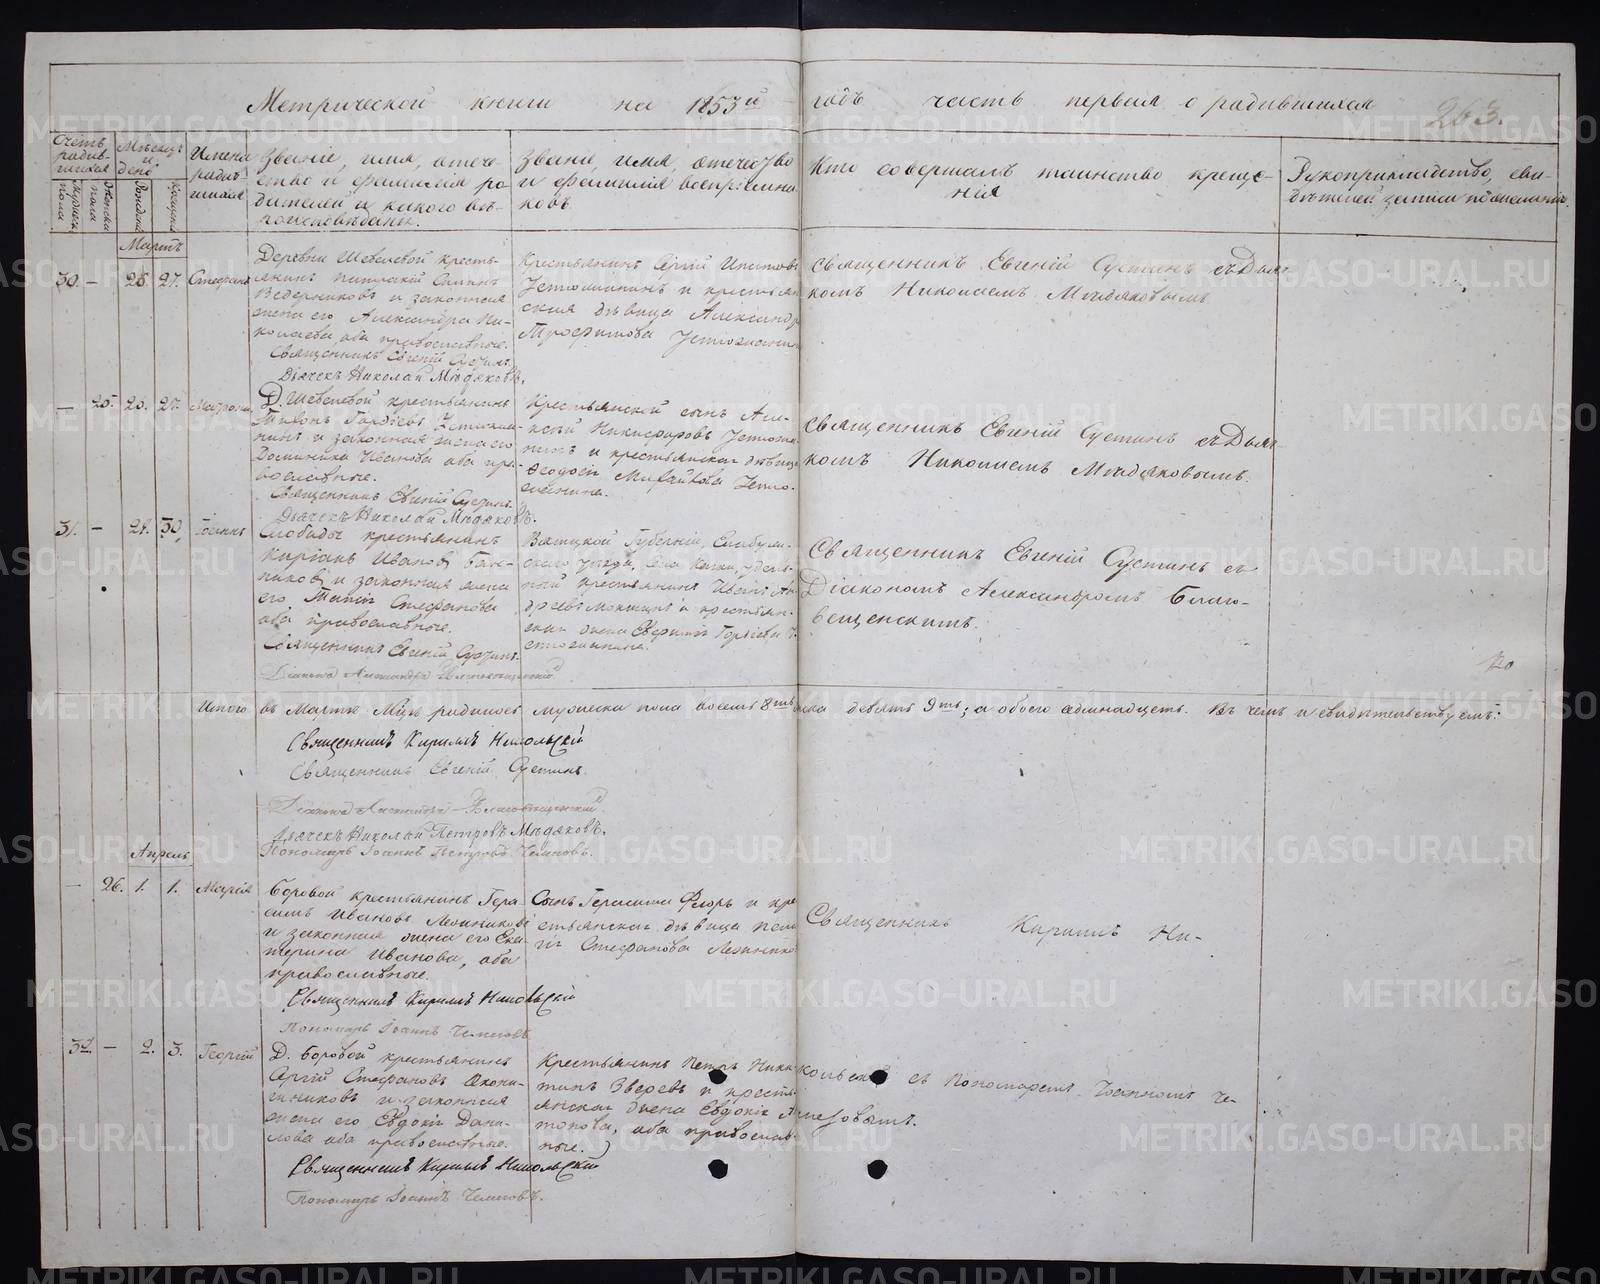 Метрической книги на 1853й годъ часть первая о родившихся
263.
Счетъ родившихся
Мужеска пола
Женска пола
Мѣсяцъ и день
Рожденія
Крещенія
Имена родившихся
Званіе, имя, отечество и фамилія родителей и какого вѣроисповѣданія.
Званіе, имя, отечество и фамилія воспріемниковъ.
Кто совершалъ таинство крещенія
Рукоприкладство свидѣтелей записи по желанію.
Мартъ
30. – 26. 27. Стефанъ
Деревни Шевелевой кресть-
янинъ
Ведерниковъ и законная
жена его Александра Ни-
колаева оба православные.
Священникъ Евгеній Сустинъ.
Дьячекъ Николай Мѣдяковъ.
Крестьянинъ Сергій
Устюжанинъ и крестьян
ская дѣвица Александр
Трофимова Устюжанин
Священникъ Евгеній Сустинъ съ Дьяч-
комъ Николаемъ Мѣдяковымъ.
– 25. 20. 27. Матрона
Д. Шевелевой крестьянинъ
Тихонъ Гордѣевъ Устюжа-
нинъ и законная жена его
Домника Иванова оба пра-
вославные.
Священникъ Евгеній Сустинъ.
Дьячекъ Николай Мѣдяковъ.
Крестьянской сынъ Але-
ксѣй Никифоровъ Устюжа
нинъ и крестьянская дѣвица
Ѳеодосія Михайлова Устю-
жанина.
Священникъ Евгеній Сустинъ съ Дьяч-
комъ Николаемъ Мѣдяковымъ.
31. – 29. 30. Іоаннъ
Слободы крестьянинъ
Киріакъ Ивановъ Бан-
никовъ и законная жена
его Татія Стефанова
оба православные.
Священникъ Евгеній Сустинъ.
Діаконъ Александръ Благовѣщенскій
Вятской Губерніи, Елабуж-
скаго уѣзда, села удѣль-
ный крестьянинъ Иванъ Ан
дреевъ и крестьян-
ская жена Гордѣева У
стюжанина.
Священникъ Евгеній Сустинъ съ
Діакономъ Александромъ Благо-
вещенскимъ.
Итого въ Мартѣ Мцѣ родилось мужеска пола восемь 8мь женска девять 9ть; а обоего одинадцеть. Въ чемъ и свидѣтельствуемъ:
Священникъ Кириллъ Никольскій
Священникъ Евгеній Сустинъ.
Діаконъ Александръ Благовѣщенскій
Дьячекъ Николай Петровъ Мѣдяковъ.
Пономарь Іоаннъ Петровъ Чемесовъ.
Апрель
– 26. 1. 1. Марія
Боровой крестьянинъ Гера-
симъ Ивановъ
и законная жена его Ека-
терина Иванова, оба
православные.
Священникъ Кириллъ Никольскій
Пономарь Іоаннъ Чемесовъ
Сынъ Герасима Флоръ и кре
стьянская дѣвица Пела
гія Стефанова
Священникъ Кириллъ Ни-
32. – 2. 3. Георгій
Д. Боровой крестьянинъ
Сергій Стефановъ Окони-
шниковъ и законная
жена его Евдокія Дани-
лова оба православные.
Священникъ Кириллъ Никольскій
Пономарь Іоаннъ Чемесовъ.
Крестьянинъ Петръ Ники
тинъ Зверевъ и кресть
янская жена Евдокія А
тонова, оба православ-
ные.
кольской съ Пономаремъ Іоанномъ Че-
месовымъ.
METRIKI.GASO-URAL.RU